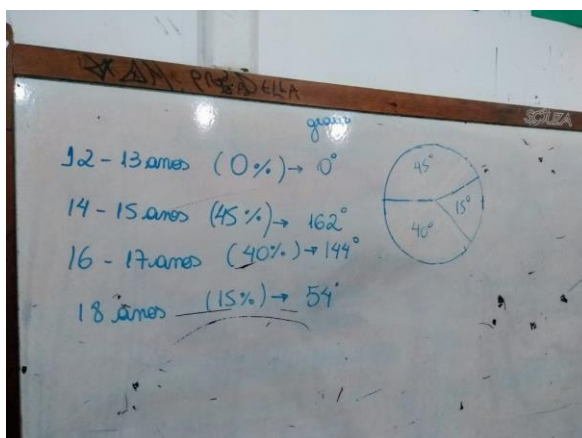 graus
12-13 anos (0%)→ 0°
14-15 anos (45%)→ 162°
16-17 anos (40%)→144°
18 anos (15%)→ 54°
45°
15°
40°